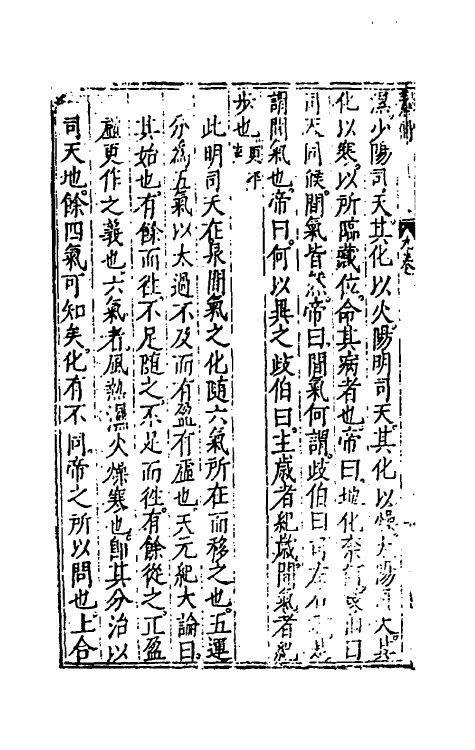 九卷
濕少陽司天其化以火陽明司天其化以燥太陽司天其
化以寒以所臨藏位命其病者也帝曰地化奈何岐伯曰
司天同候間氣皆然帝曰間氣何謂岐伯曰司左右
謂間氣也帝曰何以異之歧伯曰主歲者紀歲間氣者紀
步也
此明司天在泉間氣之化隨六氣所在而移之也五運
分為五氣以太過不及而有盈有虛也天元紀大論曰
其始也有餘而往不足隨之不足而往有餘從之正盈
虛更作之義也六氣者風熱濕火燥寒也即其分治以
司天地餘四氣可知矣化有不同帝之所以問也上合